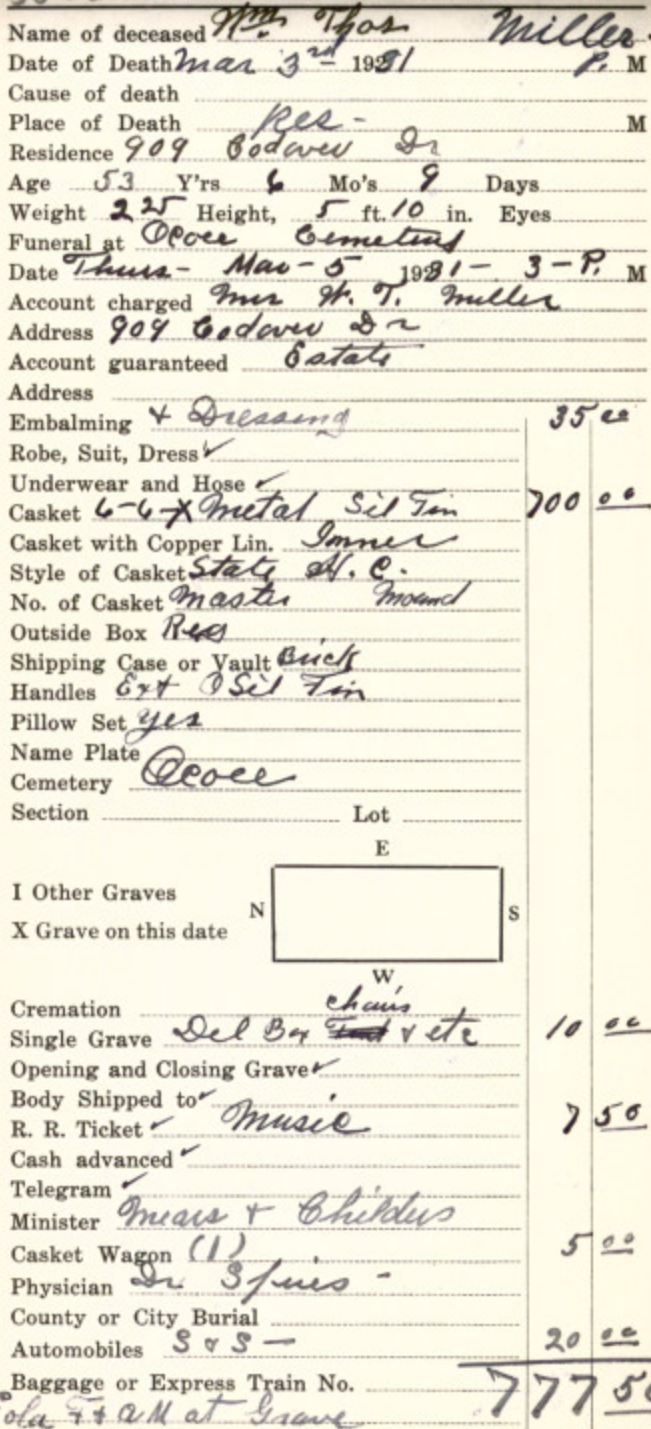 Name of deceased Wm Thos Miller
Date of Death Mar 3rd 1931 P. M
Cause of death
Place of Death Res - M
Residence 909 Dr
Age 53 Y'rs 6 Mo's 9 Days
Weight 225 Height, 5 ft. 10 in. Eyes
Funeral at Ocoee Cemetery
Date Thurs - Mar - 5 1931 - 3 - P. M
Account charged Mrs W. T. Miller
Address 909 Dr
Account guaranteed Estate
Address
Embalming + Dressing 35 00
Robe, Suit, Dress ✓
Underwear and Hose ✓
Casket 6-6-X Metal Sil Tin 700 00
Casket with Copper Lin. Inner
Style of Casket State H. C.
No. of Casket Master Mound
Outside Box Reg
Shipping Case or Vault Brick
Handles Ext Sil Tin
Pillow Set yes
Name Plate
Cemetery Ocoee
Section Lot
E
I Other Graves
N S
X Grave on this date
W
Cremation chairs
Single Grave Del Box Tent & etc 10 00
Opening and Closing Grave ✓
Body Shipped to ✓
R. R. Ticket ✓ Music 7 50
Cash advanced ✓
Telegram ✓
Minister Mears + Childers
Casket Wagon (1) 5 00
Physician Dr Spires -
County or City Burial
Automobiles S & S - 20 00
Baggage or Express Train No. 777 50
F + A M at Grave